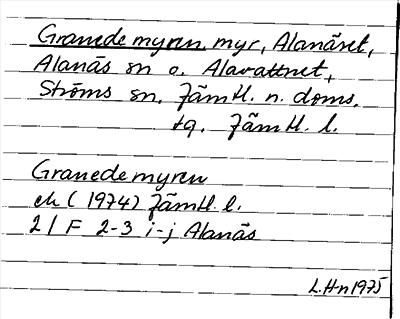 Granedemyren, myr, Alanäset,
Alanäs sn o. Alavattnet,
Ströms sn, Jämtl. n. doms.
tg. Jämtl. l.
Granedemyren
ek (1974) Jämtl. l.
21 F 2-3 i-j Alanäs
L.Hn 1975